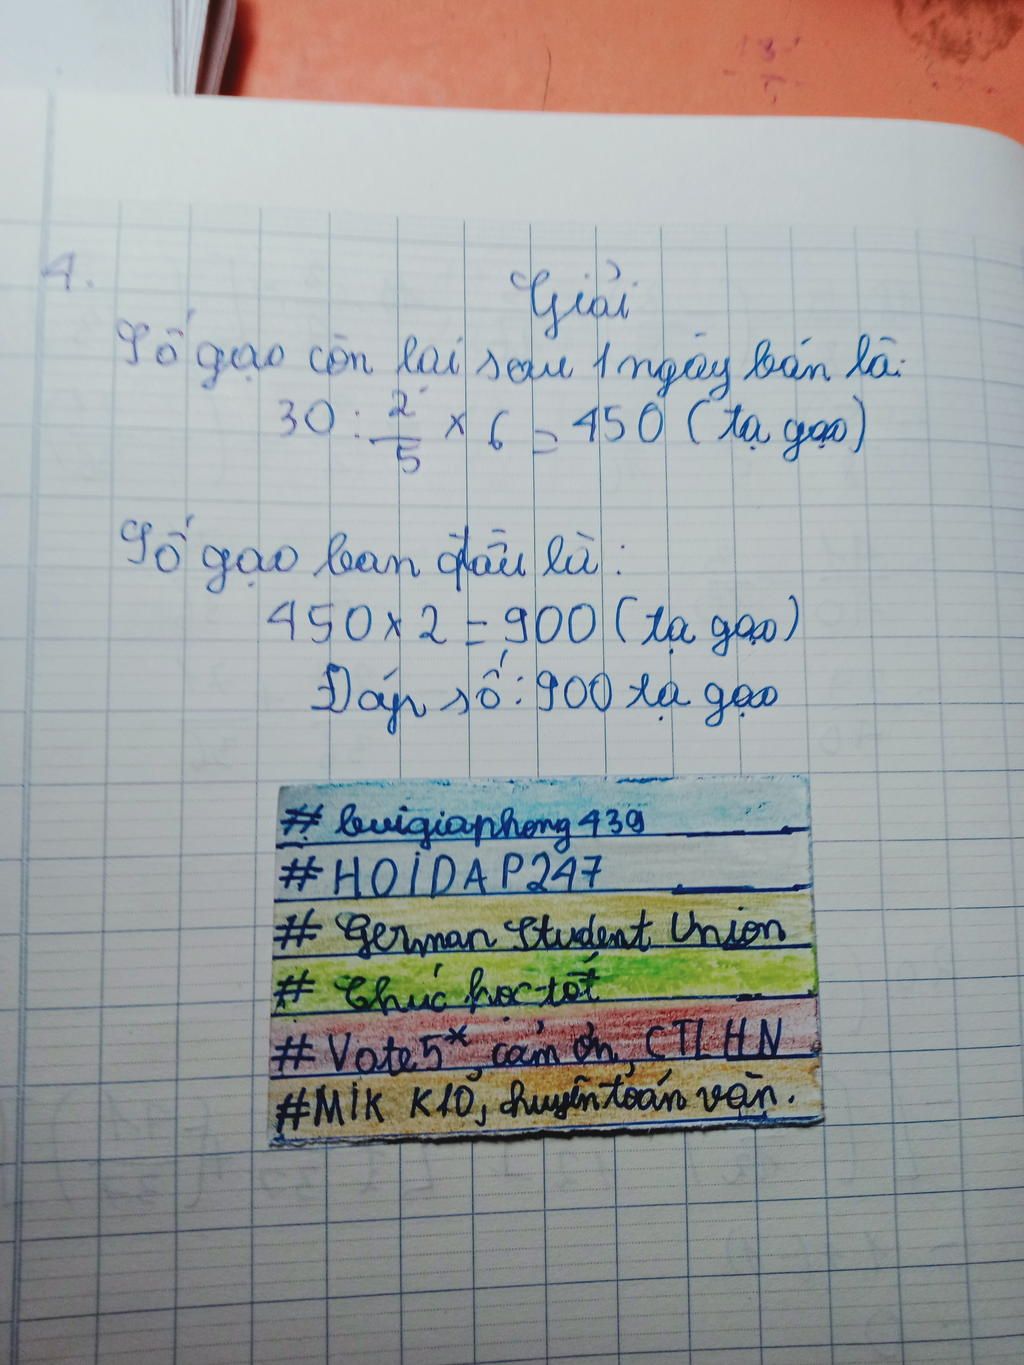 4.
Giải
Số gạo còn lại sau 1 ngày bán là:
30 : 2/5 × 6 = 450 (tạ gạo)
Số gạo ban đầu là:
450 × 2 = 900 (tạ gạo)
Đáp số: 900 tạ gạo
# buigiaphong439
# HOIDAP247
# German Student Union
# Chúc học tốt
# Vote 5*, cảm ơn, CTLHN
#MIK K10, chuyên toán văn.